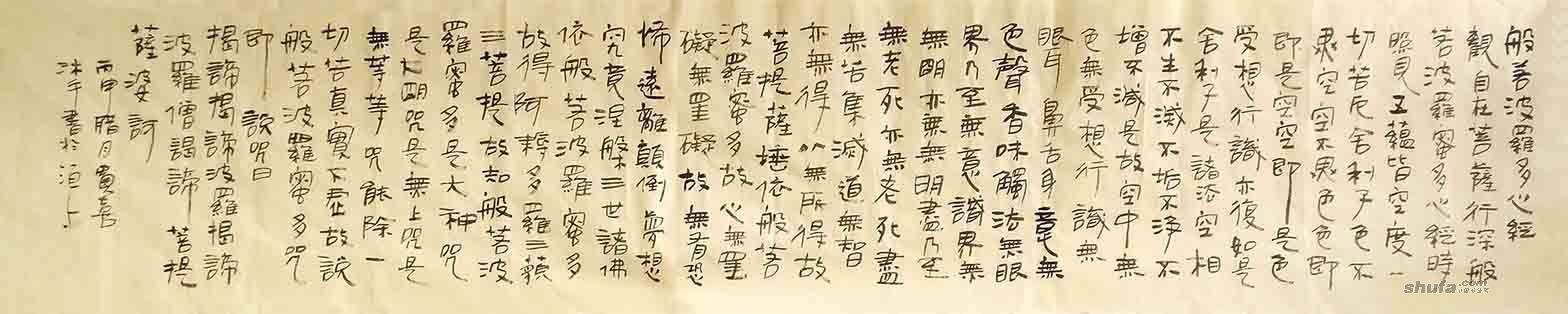 般若波羅多心經
觀自在菩薩行深般
若波羅蜜多心經時
照見五蘊皆空度一
切苦厄舍利子色不
異空空不異色色即
即是空空即是色
受想行識亦復如是
舍利子是諸法空相
不生不滅不垢不淨不
增不減是故空中無
色無受想行識無
眼耳鼻舌身意無
色聲香味觸法無眼
界乃至無意識界無
無明亦無無明盡乃至
無老死亦無老死盡
無苦集滅道無智
亦無得以無所得故
菩提薩埵依般若
波羅蜜多故心無罣
礙無罣礙故無有恐
怖遠離顛倒夢想
究竟涅槃三世諸佛
依般若波羅蜜多
故得阿耨多羅三藐
三菩提故知般若波
羅蜜多是大神咒
是大明咒是無上咒是
無等等咒能除一
切苦真實不虛故說
般若波羅蜜多咒
即說咒曰
揭諦揭諦波羅揭諦
波羅僧揭諦菩提
薩婆訶
丙申腊月
書於
shufa.com